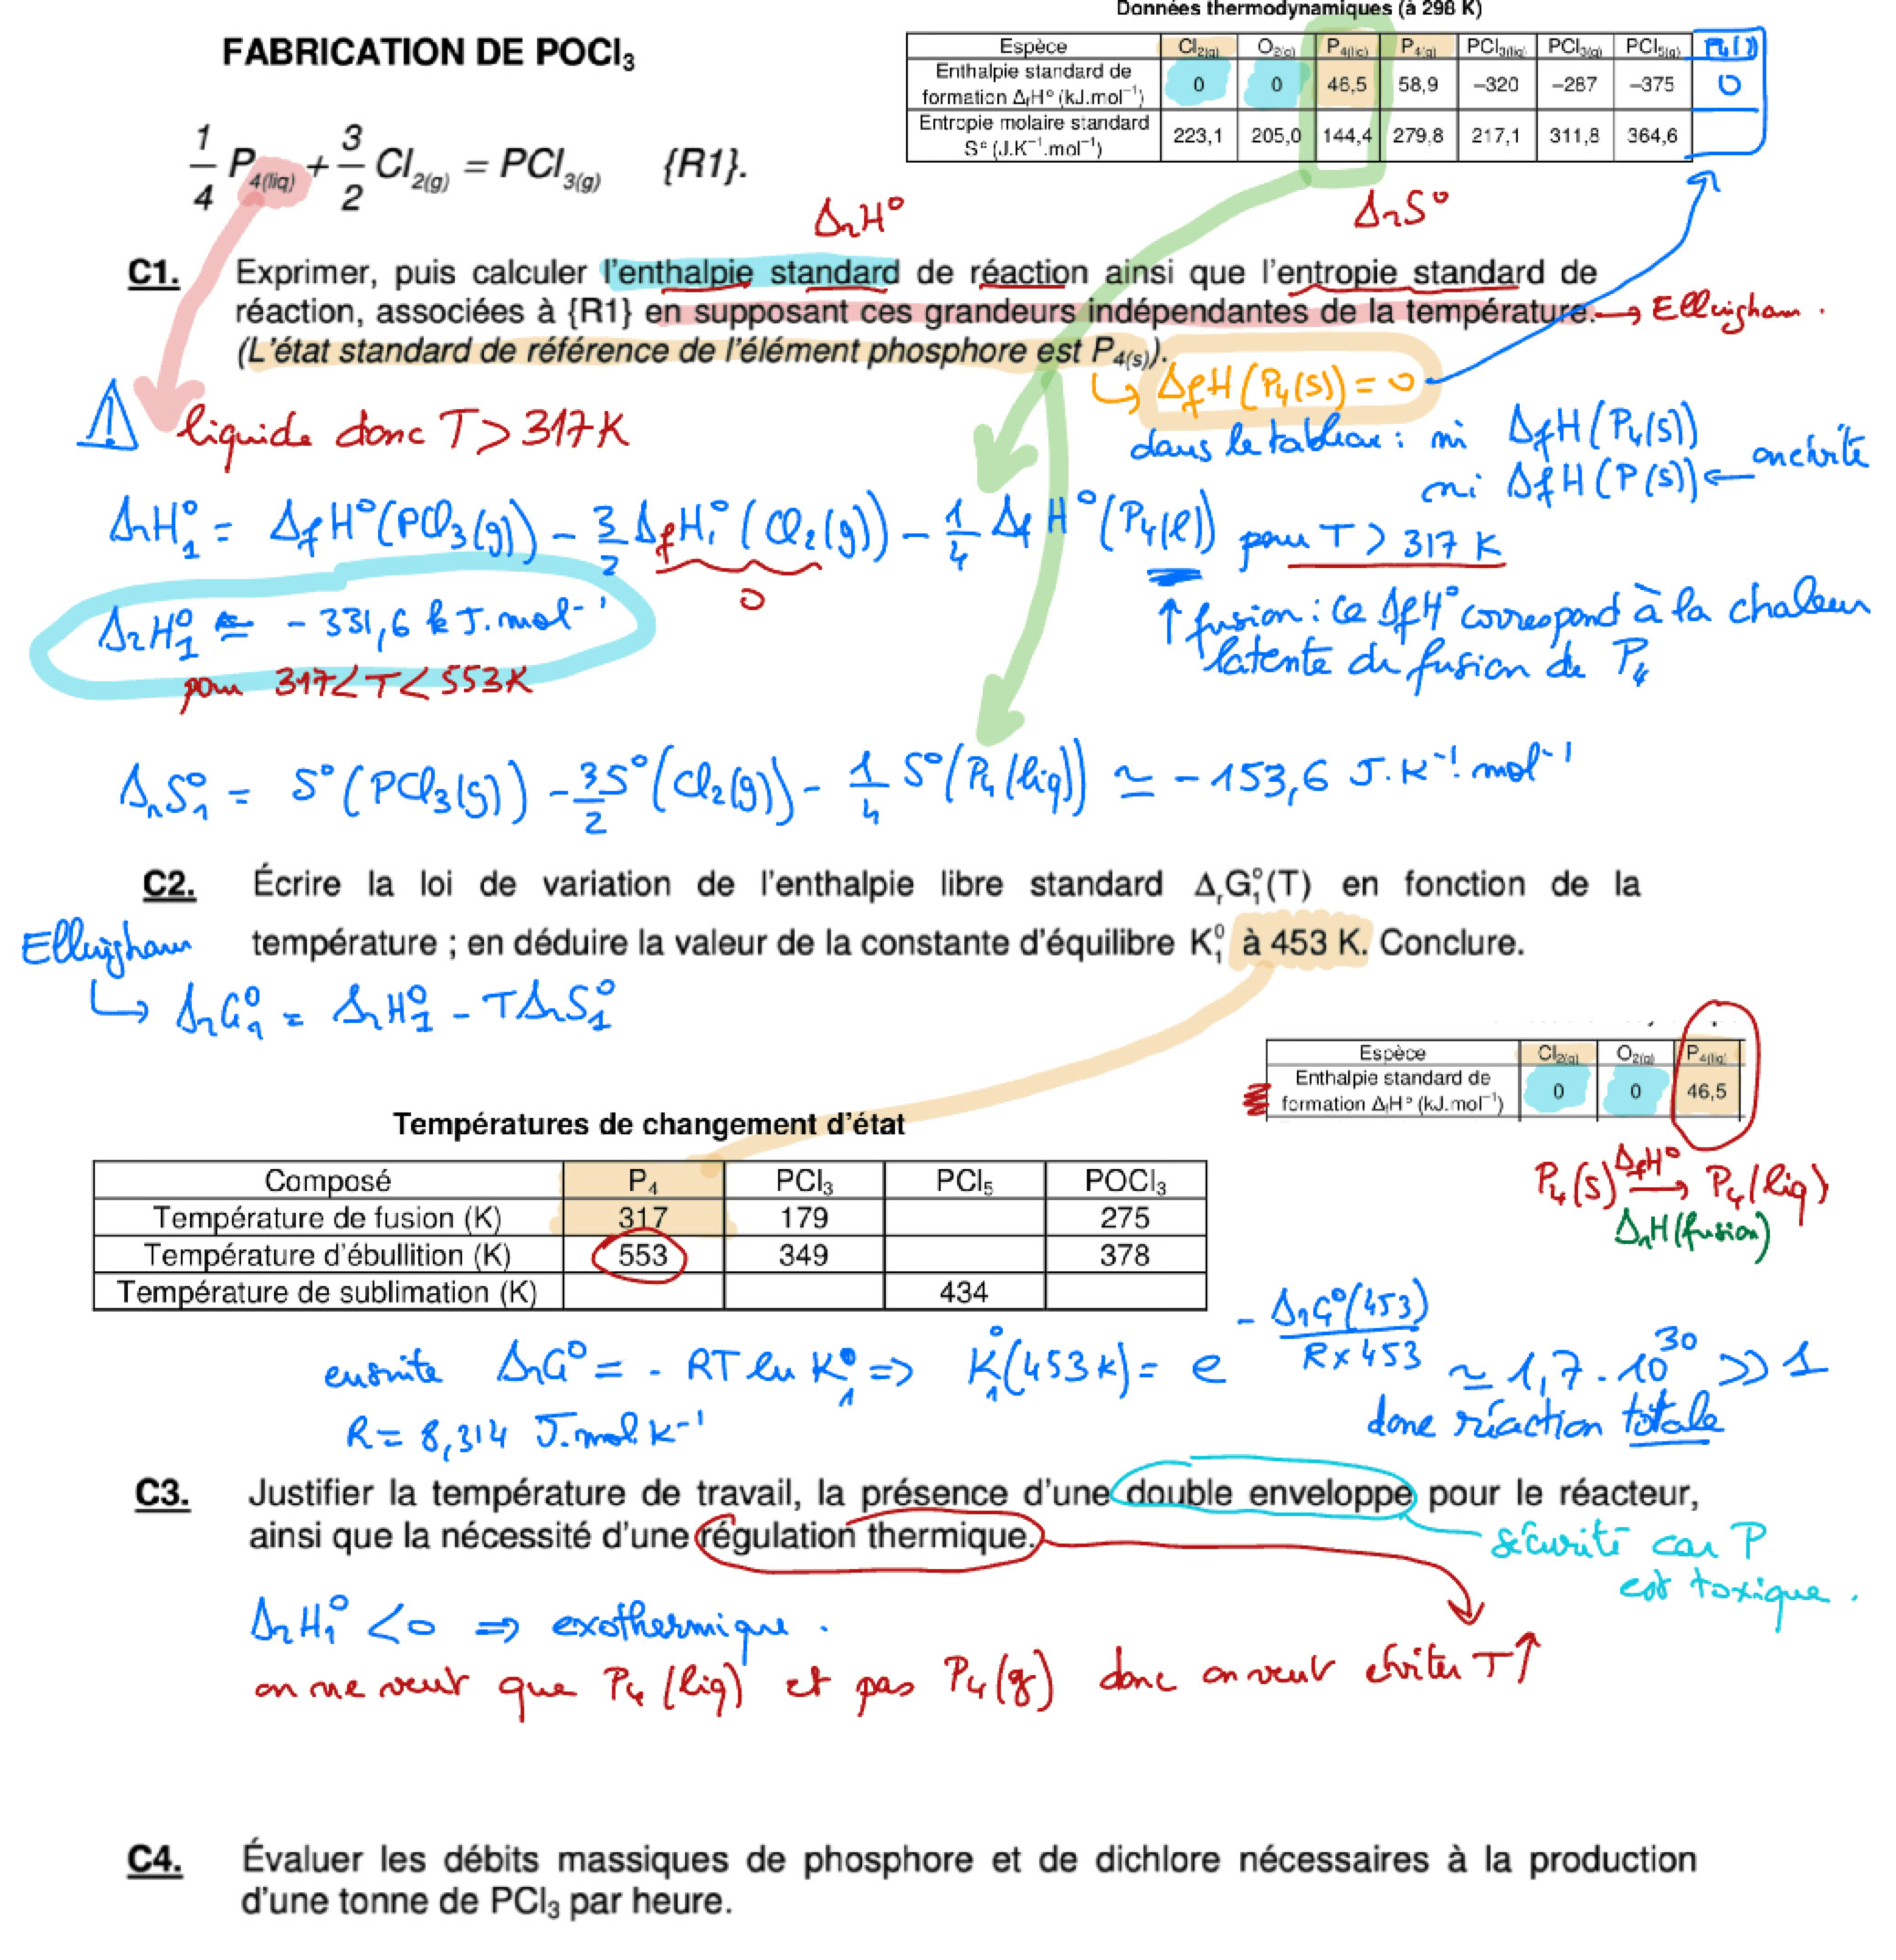 Données thermodynamiques (à 298 K)
FABRICATION DE POCl₃
Espèce Cl₂(g) O₂(g) P₄(liq) P₄(g) PCl₃(liq) PCl₃(g) PCl₅(g)
Enthalpie standard de formation ΔfH° (kJ.mol⁻¹) 0 0 46,5 58,9 –320 –287 –375 0
Entropie molaire standard S° (J.K⁻¹.mol⁻¹) 223,1 205,0 144,4 279,8 217,1 311,8 364,6
1/4 P₄(liq) + 3/2 Cl₂(g) = PCl₃(g) {R1}.
ΔrH° ΔrS°
C1. Exprimer, puis calculer l'enthalpie standard de réaction ainsi que l'entropie standard de
réaction, associées à {R1} en supposant ces grandeurs indépendantes de la température. → Ellingham.
(L'état standard de référence de l'élément phosphore est P₄(s)).
↳ ΔfH(P₄(s)) = 0
⚠ liquide donc T > 317 K
dans le tableau : ni ΔfH(P₄(s))
ni ΔfH(P(s)) ←
ΔrH₁° = ΔfH°(PCl₃(g)) – 3/2 ΔfH°(Cl₂(g)) – 1/4 ΔfH°(P₄(l)) pour T > 317 K
0
ΔrH₁° ≃ - 331,6 kJ.mol⁻¹
pour 317 < T < 553 K
↑ fusion : ce ΔfH° correspond à la chaleur
latente de fusion de P₄
ΔrS₁° = S°(PCl₃(g)) – 3/2 S°(Cl₂(g)) – 1/4 S°(P₄(liq)) ≃ – 153,6 J.K⁻¹.mol⁻¹
C2. Écrire la loi de variation de l'enthalpie libre standard ΔrG₁°(T) en fonction de la
température ; en déduire la valeur de la constante d'équilibre K₁⁰ à 453 K. Conclure.
Ellingham
↳ ΔrG₁° = ΔrH₁° – TΔrS₁°
Espèce Cl₂(g) O₂(g) P₄(liq)
Enthalpie standard de formation ΔfH° (kJ.mol⁻¹) 0 0 46,5
P₄(s) ΔfH° → P₄(liq)
ΔrH(fusion)
Températures de changement d'état
Composé P₄ PCl₃ PCl₅ POCl₃
Température de fusion (K) 317 179 275
Température d'ébullition (K) 553 349 378
Température de sublimation (K) 434
ensuite ΔrG° = - RT ln K₁° => K₁°(453 K) = e^(- ΔrG°(453) / R x 453) ≃ 1,7 . 10³⁰ >> 1
R = 8,314 J.mol K⁻¹
donc réaction totale
C3. Justifier la température de travail, la présence d'une double enveloppe pour le réacteur,
ainsi que la nécessité d'une régulation thermique.
sécurité car P
est toxique.
ΔrH₁° < 0 => exothermique.
on ne veut que P₄(liq) et pas P₄(g) donc on veut éviter T↑
C4. Évaluer les débits massiques de phosphore et de dichlore nécessaires à la production
d'une tonne de PCl₃ par heure.